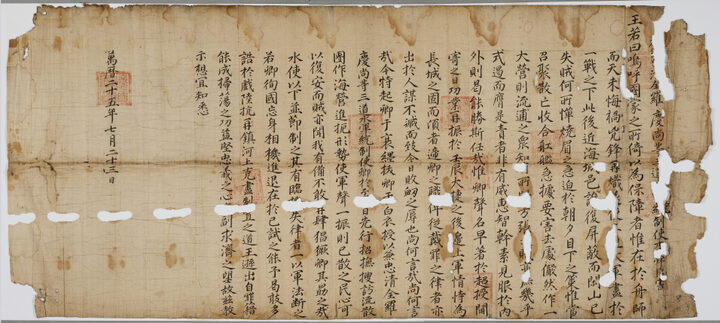 全羅慶尙等道
王若曰嗚呼國家之所倚以爲保障者惟在於舟師
而天未悔禍兇鋒再熾大軍盡於
一戰之下此後近海城邑誰復屛蔽而閑山已
失賊何所憚燒眉之急迫於朝夕目下之策惟當
召聚散亡收合船艦急據要害去處儼然作一
大營則流逋之衆知所方張賊亦庶幾乎
式遏而膺是責者非有威惠智幹素見服於內
外則曷能勝斯任哉惟卿聲名早著於超授閫
寄之日功業再振於壬辰大捷之後邊上軍情恃爲
長城之固而頃者遞卿之職俾從戴罪之律者亦
出於人謀不臧而致今日敗衄之辱也尙何言哉尙何言
哉今特起卿于墨縗拔卿于白衣授以兼忠淸全羅
慶尙等三道水軍統制使卿於至之日先行招撫搜訪流散
團作海營進扼形勢使軍聲一振則已散之民心可
以復安而賊亦聞我有備不敢再肆猖獗卿其勖之哉
水使以下並節制之其有臨機失律者一以軍法斷之
若卿徇國忘身相機進退在於已試之能予曷敢多
誥於戲陸抗再鎭河上克盡制置之道王遜出自罪籍
能成掃蕩之功益堅忠義之心庶副求濟之望故玆敎
示想宜知悉
萬曆二十五年七月二十三日